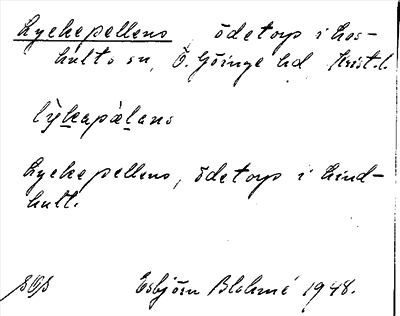 Lyckepellens ödetorp i Los-
hults sn, Ö. Göinge hd Krist. l.
lỳkapàlans
Lyckepellens, ödetorp i Lind-
hult.
Esbjörn Blohmé 1948.